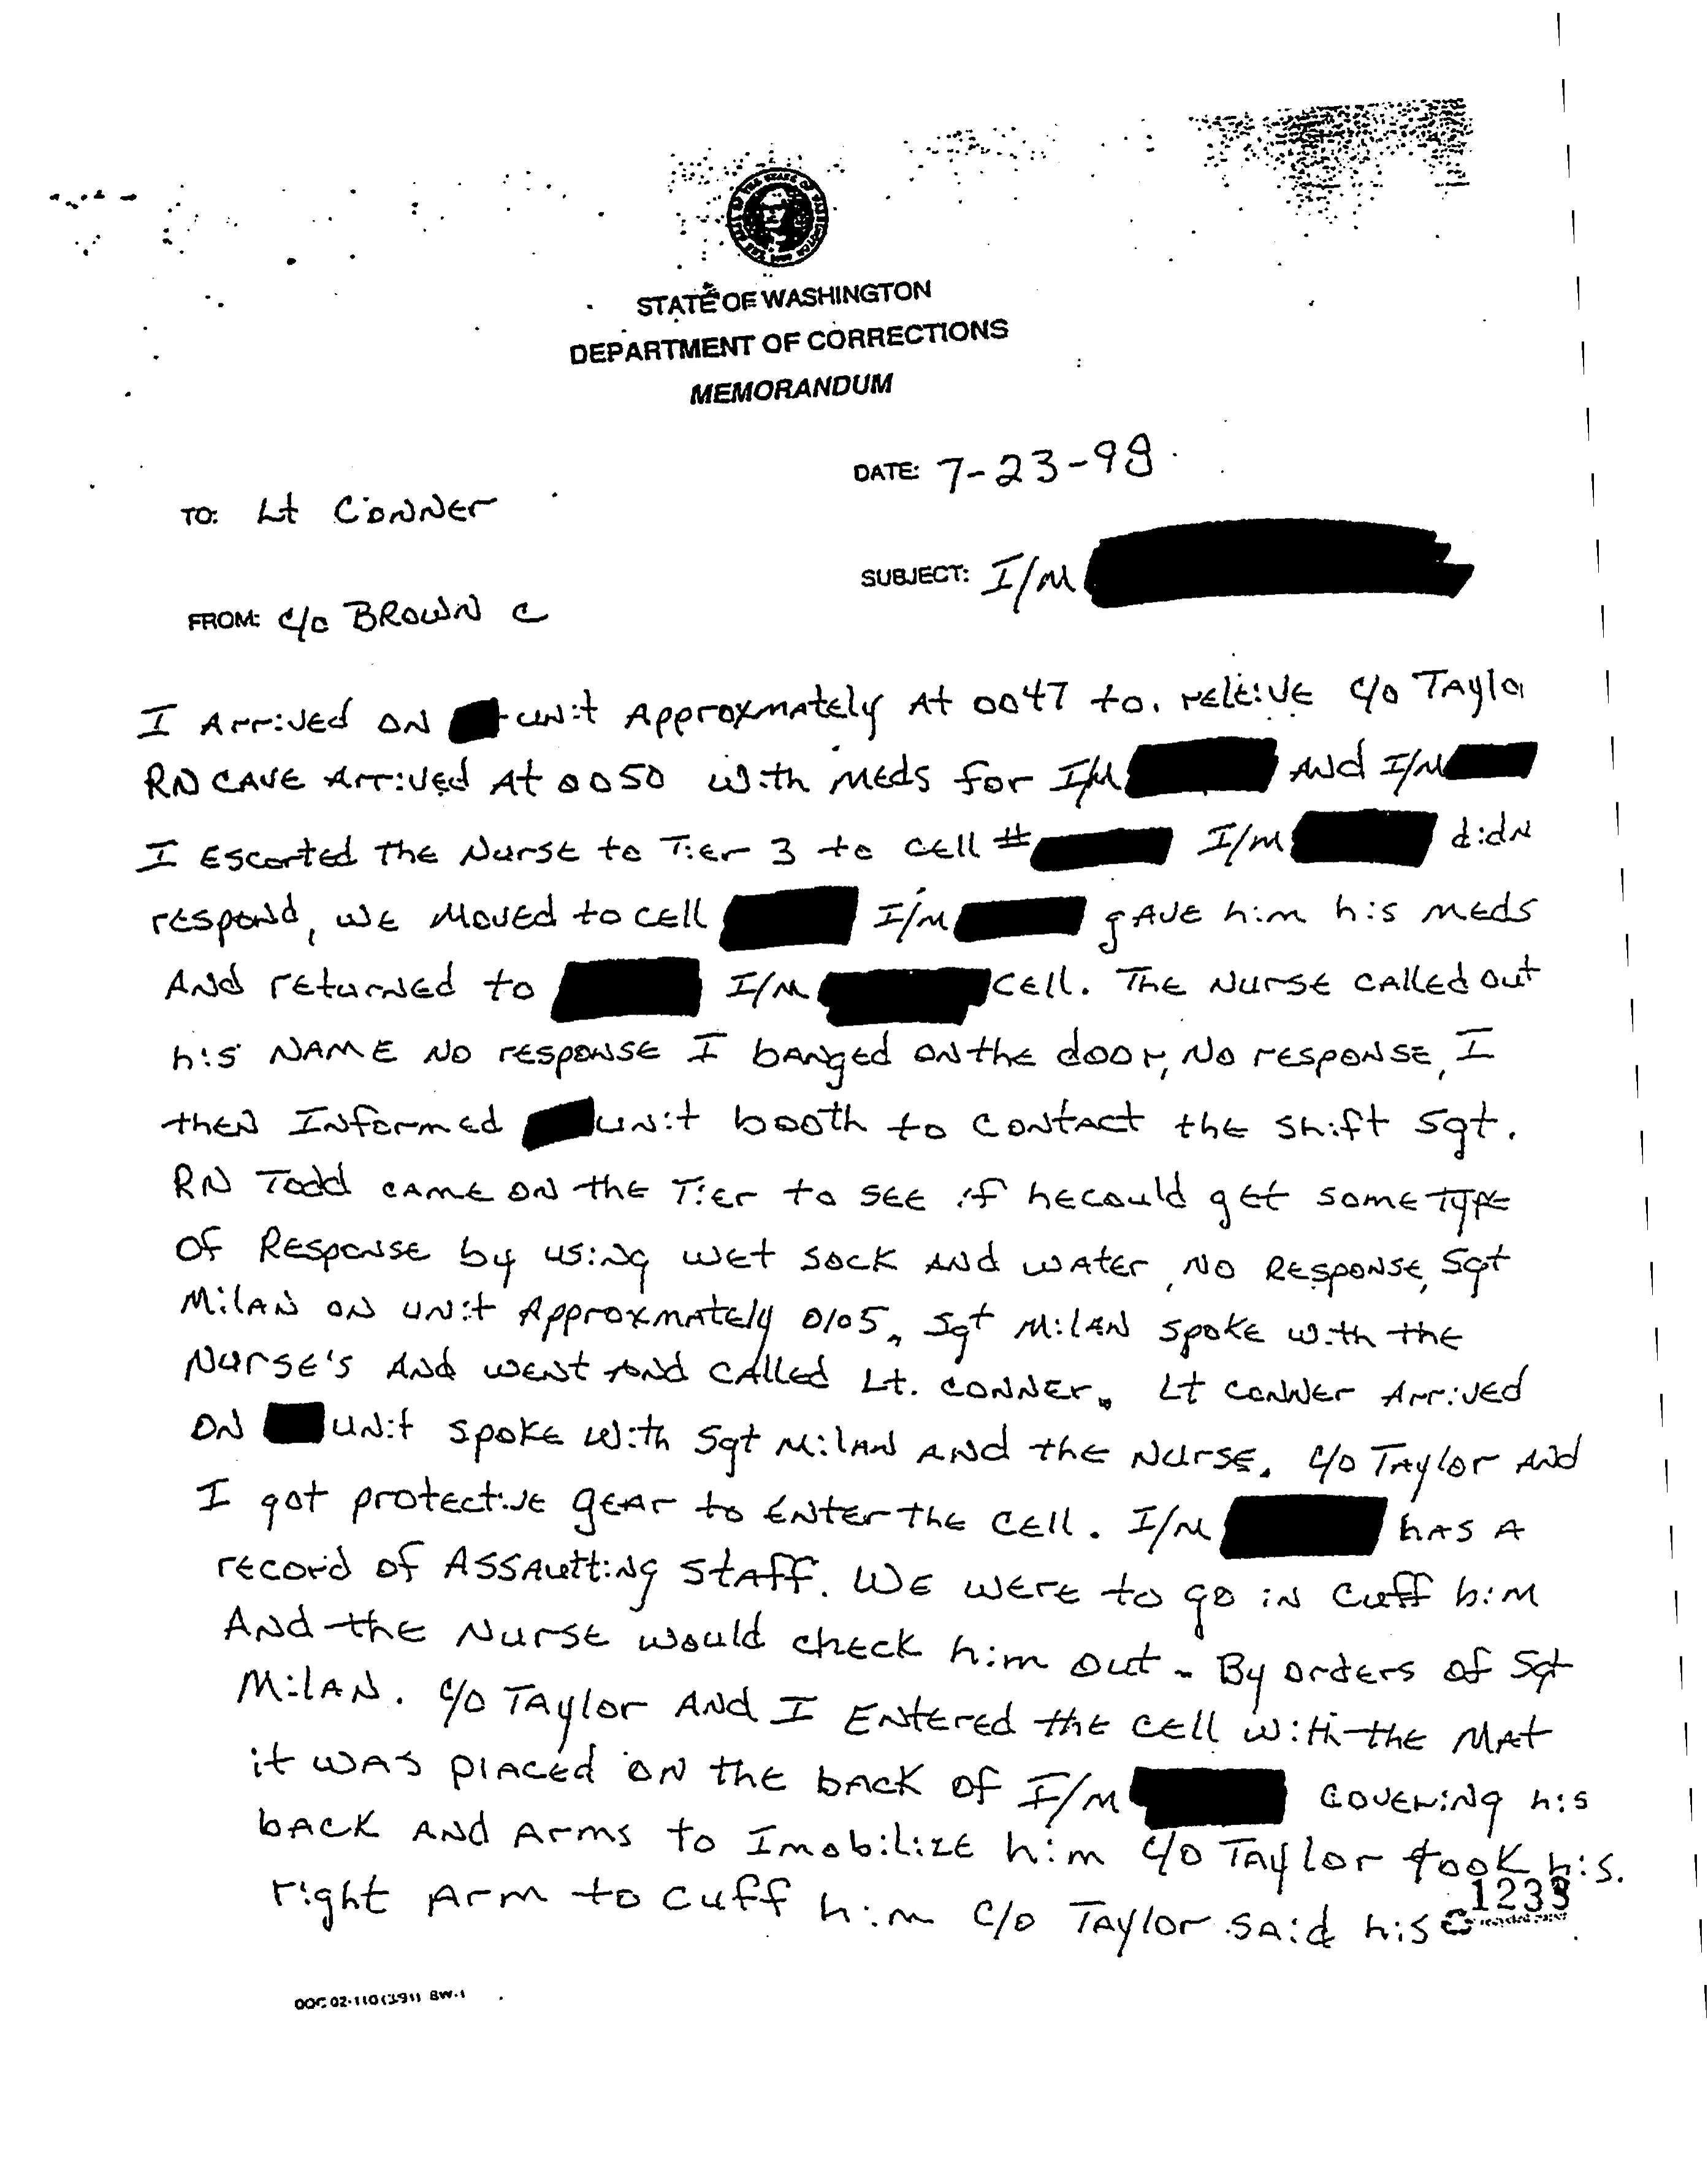 STATE OF WASHINGTON
DEPARTMENT OF CORRECTIONS
MEMORANDUM
DATE: 7-23-98
TO: Lt CONNER
SUBJECT: I/M
FROM: C/O BROWN C
I Arrived on unit Approxmately At 0047 to. releive C/O Taylo
RN CAVE Arrived At 0050 with Meds for I/M And I/M
I Escorted the Nurse to Tier 3 to cell # I/M didn
respond, we Moved to cell I/M gave him his meds
And returned to I/M cell. The Nurse called out
his NAME No response I banged on the door, No response, I
then Informed unit booth to contact the shift Sgt.
RN Todd came on the Tier to see if he could get some type
of Response by using wet sock And water, No Response, Sgt
Milan on unit Approxmately 0105, Sgt Milan spoke with the
Nurse's And went And called Lt. Conner. Lt Conner Arrived
on unit spoke with Sgt Milan And the Nurse. C/O Taylor And
I got protective gear to Enter the cell. I/M has a
record of Assaultting Staff. We were to go in cuff him
And the Nurse would check him out - By orders of Sgt
Milan. C/O Taylor And I Entered the cell with the Mat
it was placed on the back of I/M covering his
back And Arms to Imobilize him C/O Taylor took his.
right Arm to cuff him C/O Taylor said his
1233
DOC 02-110 (3/91) BW-1